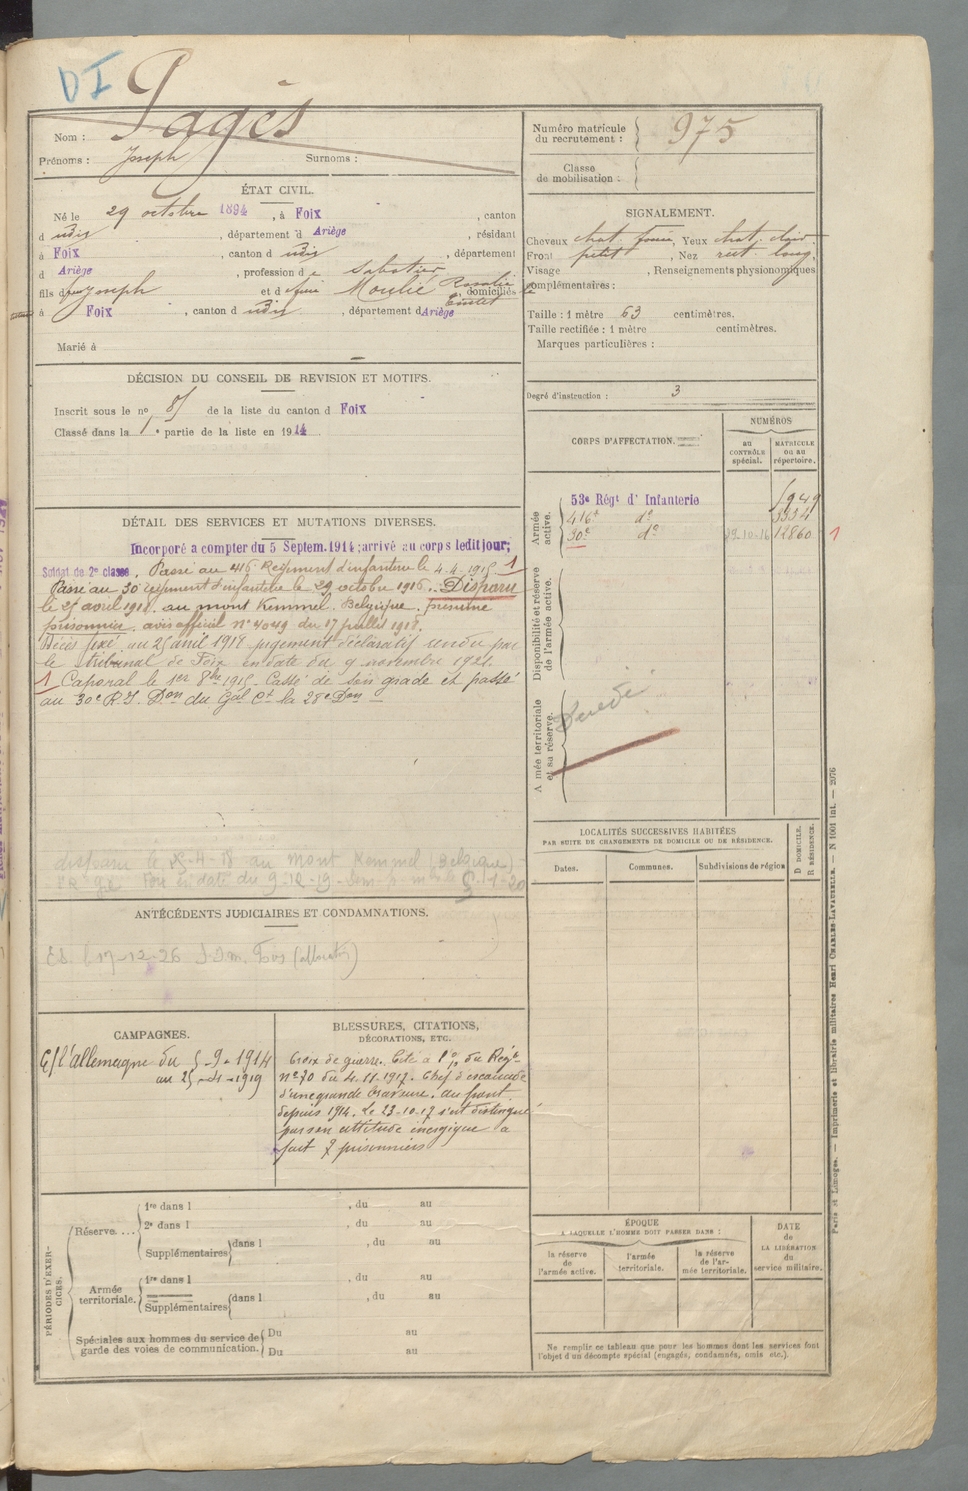 DI
Pagès
Nom :
Prénoms : Joseph Surnoms :
Numéro matricule
du recrutement : 975
Classe
de mobilisation :
ÉTAT CIVIL.
Né le 29 octobre 1894, à Foix, canton
d udis, département d Ariège, résidant
à Foix, canton d udis, département
d Ariège, profession de Sabotier
fils d feu Joseph et d feue Moulié Rosalie domiciliés
à Foix, canton d udis, département d Ariège
Marié à
SIGNALEMENT.
Cheveux chat. foncé, Yeux chat. clair
Front petit, Nez rect. long,
Visage, Renseignements physionomiques
complémentaires :
Taille : 1 mètre 63 centimètres.
Taille rectifiée : 1 mètre centimètres.
Marques particulières :
Degré d'instruction : 3
DÉCISION DU CONSEIL DE REVISION ET MOTIFS.
Inscrit sous le no 81 de la liste du canton d Foix
Classé dans la 1 e partie de la liste en 1914
DÉTAIL DES SERVICES ET MUTATIONS DIVERSES.
Incorporé a compter du 5 Septem. 1914; arrivé au corps ledit jour;
Soldat de 2e classe. Passé au 416 Régiment d'infanterie le 4.4.1915 1
Passé au 30 régiment d'infanterie le 29 octobre 1916. Disparu
le 25 avril 1918. au mont Kemmel. Belgique. présumé
prisonnier. avis officiel n° 4049 du 17 juillet 1918.
Décès fixé au 25 avril 1918 jugement déclaratif rendu par
le tribunal de Foix en date du 9 novembre 1921.
1 Caporal le 1er 8bre 1915. Cassé de son grade et passé
au 30e R.I. Don du Gal Ct la 28e Don
disparu le -4-18 au Mont Kemmel (Belgique)
Foix en date du 9-12-19
CORPS D'AFFECTATION.
NUMÉROS
au
CONTRÔLE
spécial.
MATRICULE
ou au
répertoire.
Armée
active.
53e Régt d'Infanterie
416e do 3334
30e do 29-10-16 12860 1
Disponibilité et réserve
de l'armée active.
A mée territoriale
et sa réserve.
LOCALITÉS SUCCESSIVES HABITÉES
PAR SUITE DE CHANGEMENTS DE DOMICILE OU DE RÉSIDENCE.
Dates.
Communes.
Subdivisions de région
D DOMICILE.
R RÉSIDENCE.
ANTÉCÉDENTS JUDICIAIRES ET CONDAMNATIONS.
17-12-26
CAMPAGNES.
C/ l'allemagne du 5-9-1914
au 25-4-1919
BLESSURES, CITATIONS,
DÉCORATIONS, ETC.
Croix de guerre. Cité à l'o/ du Régt
n° 70 du 4.11.1917. Chef d'escouade
d'une grande bravoure. au front
depuis 1914. Le 23-10-17 s'est distingué
par son attitude énergique a
fait 7 prisonniers
PÉRIODES D'EXERCICES.
Réserve....
1re dans l, du au
2e dans l, du au
Supplémentaires dans l, du au
Armée
territoriale.
1re dans l, du au
Supplémentaires dans l, du au
Spéciales aux hommes du service de
garde des voies de communication.
Du au
Du au
ÉPOQUE
A LAQUELLE L'HOMME DOIT PASSER DANS :
la réserve
de
l'armée active.
l'armée
territoriale.
la réserve
de l'ar-
mée territoriale.
DATE
de
LA LIBÉRATION
du
service militaire.
Ne remplir ce tableau que pour les hommes dont les services font
l'objet d'un décompte spécial (engagés, condamnés, omis etc.).
Paris et Limoges. — Imprimerie et librairie militaires Henri CHARLES-LAVAUZELLE. — N 1001 int. — 2076